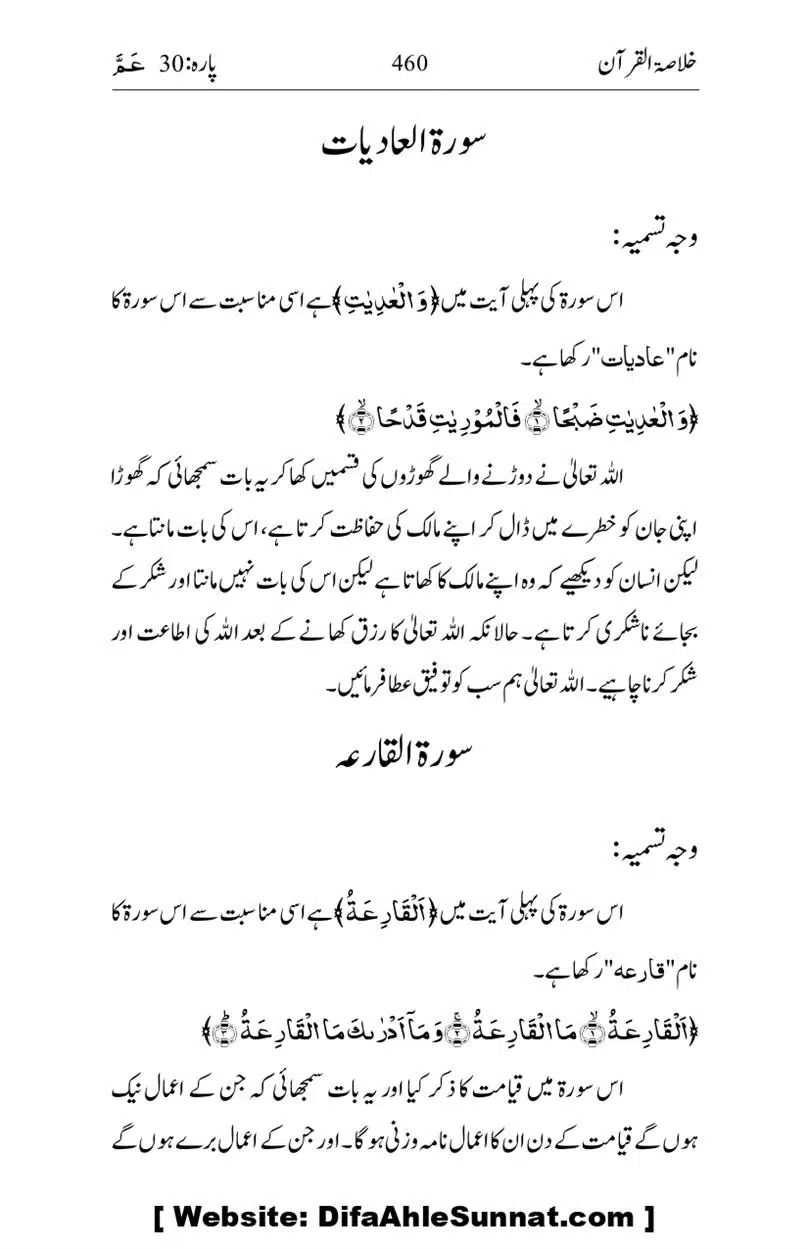 خلاصۃ القرآن 460 پارہ:30 عَمَّ
سورۃ العادیات
وجہ تسمیہ:
اس سورۃ کی پہلی آیت میں ﴿وَالْعٰدِیٰتِ﴾ ہے اسی مناسبت سے اس سورۃ کا
نام "عادیات" رکھا ہے۔
﴿وَالْعٰدِیٰتِ ضَبْحًا ۙ﴿۱﴾ فَالْمُوْرِیٰتِ قَدْحًا ۙ﴿۲﴾﴾
اللہ تعالیٰ نے دوڑنے والے گھوڑوں کی قسمیں کھا کر یہ بات سمجھائی کہ گھوڑا
اپنی جان کو خطرے میں ڈال کر اپنے مالک کی حفاظت کرتا ہے، اس کی بات مانتا ہے۔
لیکن انسان کو دیکھیے کہ وہ اپنے مالک کا کھاتا ہے لیکن اس کی بات نہیں مانتا اور شکر کے
بجائے ناشکری کرتا ہے۔ حالانکہ اللہ تعالیٰ کا رزق کھانے کے بعد اللہ کی اطاعت اور
شکر کرنا چاہیے۔ اللہ تعالیٰ ہم سب کو توفیق عطا فرمائیں۔
سورۃ القارعہ
وجہ تسمیہ:
اس سورۃ کی پہلی آیت میں ﴿اَلْقَارِعَةُ﴾ ہے اسی مناسبت سے اس سورۃ کا
نام "قارعہ" رکھا ہے۔
﴿اَلْقَارِعَةُ ۙ﴿۱﴾ مَا الْقَارِعَةُ ۚ﴿۲﴾ وَمَاۤ اَدْرٰىكَ مَا الْقَارِعَةُ ؕ﴿۳﴾﴾
اس سورۃ میں قیامت کا ذکر کیا اور یہ بات سمجھائی کہ جن کے اعمال نیک
ہوں گے قیامت کے دن ان کا اعمال نامہ وزنی ہو گا۔ اور جن کے اعمال برے ہوں گے
[ Website: DifaAhleSunnat.com ]